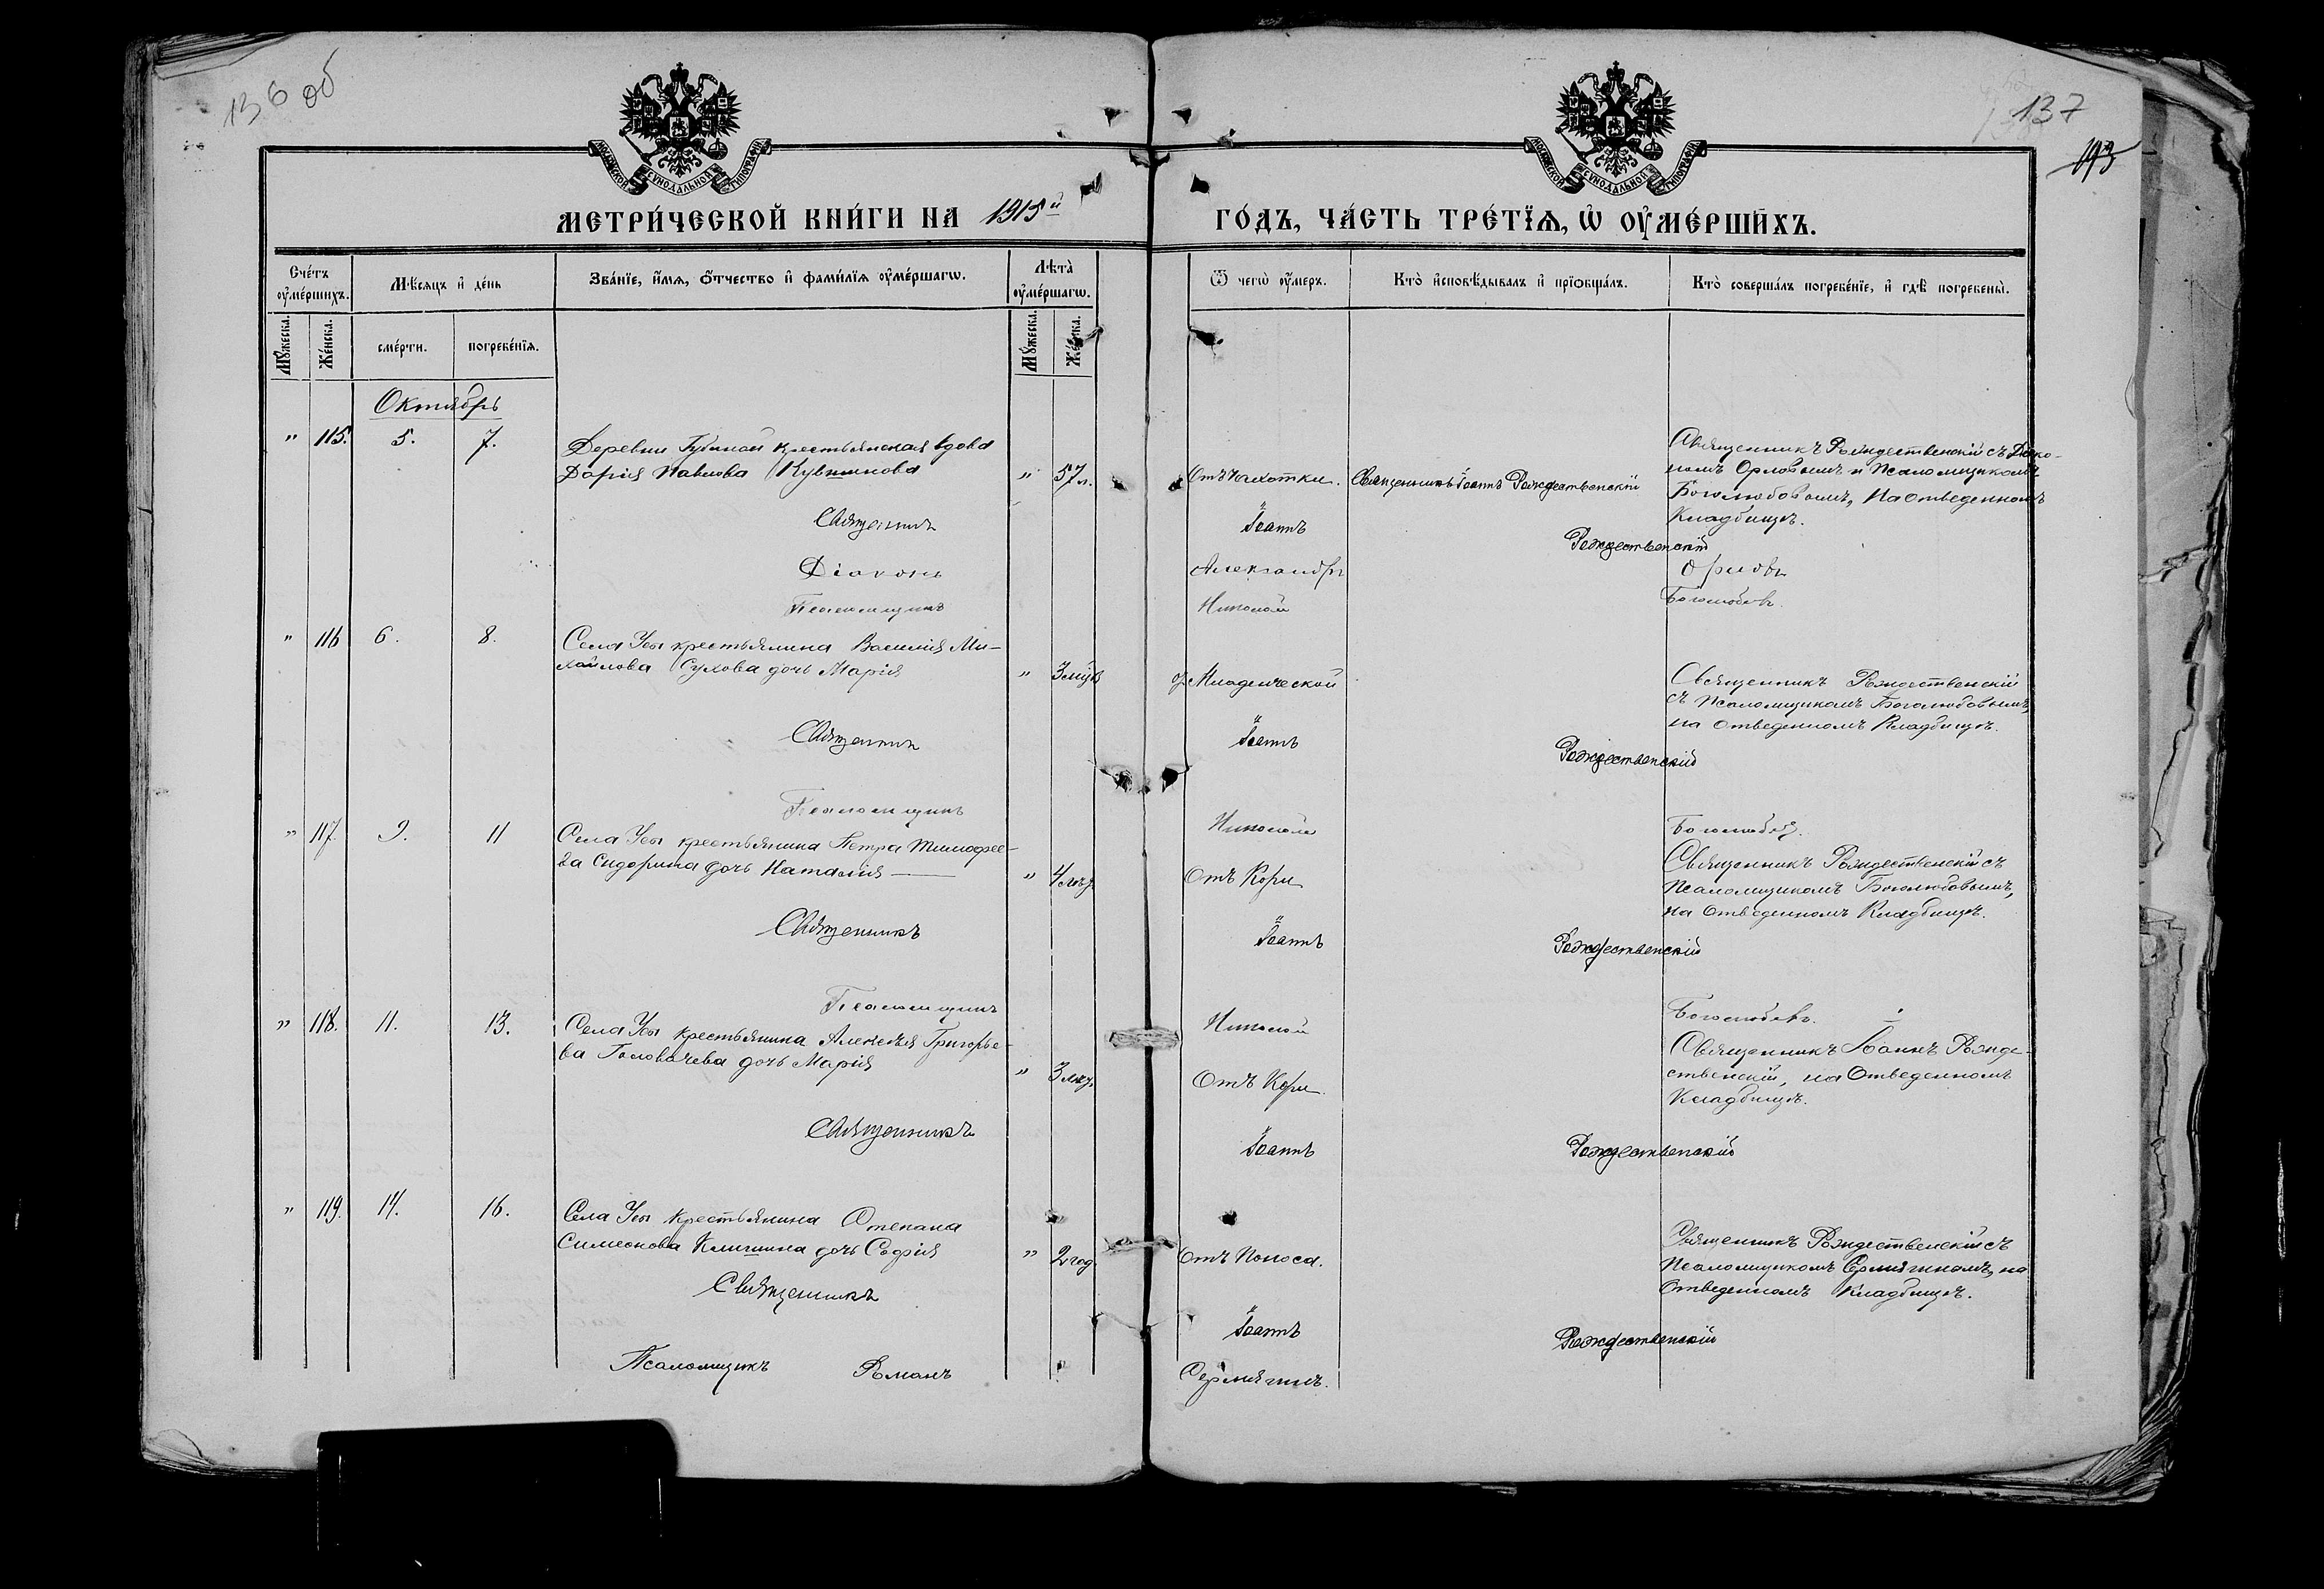 136 об
137
193
МОСКОВСКОЙ СУНОДАЛЬНОЙ ТИПОГРАФІИ
МОСКОВСКОЙ СУНОДАЛЬНОЙ ТИПОГРАФІИ
МЕТРИ́ЧЕСКОЙ КНИ́ГИ НА 1915й ГО́ДЪ, ЧА́СТЬ ТРЕ́ТІѦ, Ѡ҆ ОУ҆МЕ́РШИХЪ.
Сче́тъ оу҆ме́ршихъ.
Мѣ́сяцъ и҆ де́нь
Зва́нїе, и҆́мѧ, ѻ҆́тчество и҆ фами́лїѧ оу҆ме́ршагѡ.
Лѣта̀ оу҆ме́ршагѡ.
Ѿ чегѡ̀ оу҆́меръ.
Кто̀ и҆сповѣ́дывалъ и҆ прїѡбща́лъ.
Кто̀ соверша́лъ погребе́нїе, и҆ гдѣ̀ погребены̀.
Мꙋ́жеска.
Же́нска.
сме́рти.
погребе́нїѧ.
Мꙋ́жеска.
Же́нска.
Октябрь
" 115. 5. 7. Деревни Губиной крестьянская вдова
Дарія Павлова Кувшинова " 57 л. Отъ чахотки. Священникъ Іоаннъ Рождественскій
Священникъ Рождественскій съ Діако-
номъ Орловымъ и Псаломщикомъ
Боголюбовымъ, На отведенномъ
Кладбищѣ.
Священникъ Іоаннъ Рождественскій
Діаконъ Александръ Орловъ
Псаломщикъ Николай Боголюбовъ.
" 116 6. 8. Села Усы крестьянина Василія Ми-
хайлова Сухова дочь Марія " 3 мѣс. Младенческой
Священникъ Рождественскій
съ Псаломщикомъ Боголюбовымъ,
на отведенномъ Кладбищѣ.
Священникъ Іоаннъ Рождественскій
Псаломщикъ Николай Боголюбовъ.
" 117. 9. 11 Села Усы крестьянина Петра Тимофее-
ва Сидорина дочь Наталія " 4 Отъ Кори
Священникъ Рождественскій съ
Псаломщикомъ Боголюбовымъ,
на Отведенномъ Кладбищѣ.
Священникъ Іоаннъ Рождественскій
Псаломщикъ Николай Боголюбовъ.
" 118. 11. 13. Села Усы крестьянина Алексѣя Григорье-
ва Головачева дочь Марія " 3 Отъ Кори.
Священникъ Іоаннъ Рожде-
ственскій, на Отведенномъ
Кладбищѣ.
Священникъ Іоаннъ Рождественскій
" 119. 14. 16. Села Усы крестьянина Степана
Симеонова Клишина дочь Софія " 2 год Отъ Поноса.
Священникъ Рождественскій съ
Псаломщикомъ Сермягинымъ, на
Отведенномъ Кладбищѣ.
Священникъ Іоаннъ Рождественскій
Псаломщикъ Романъ Сермягинъ.